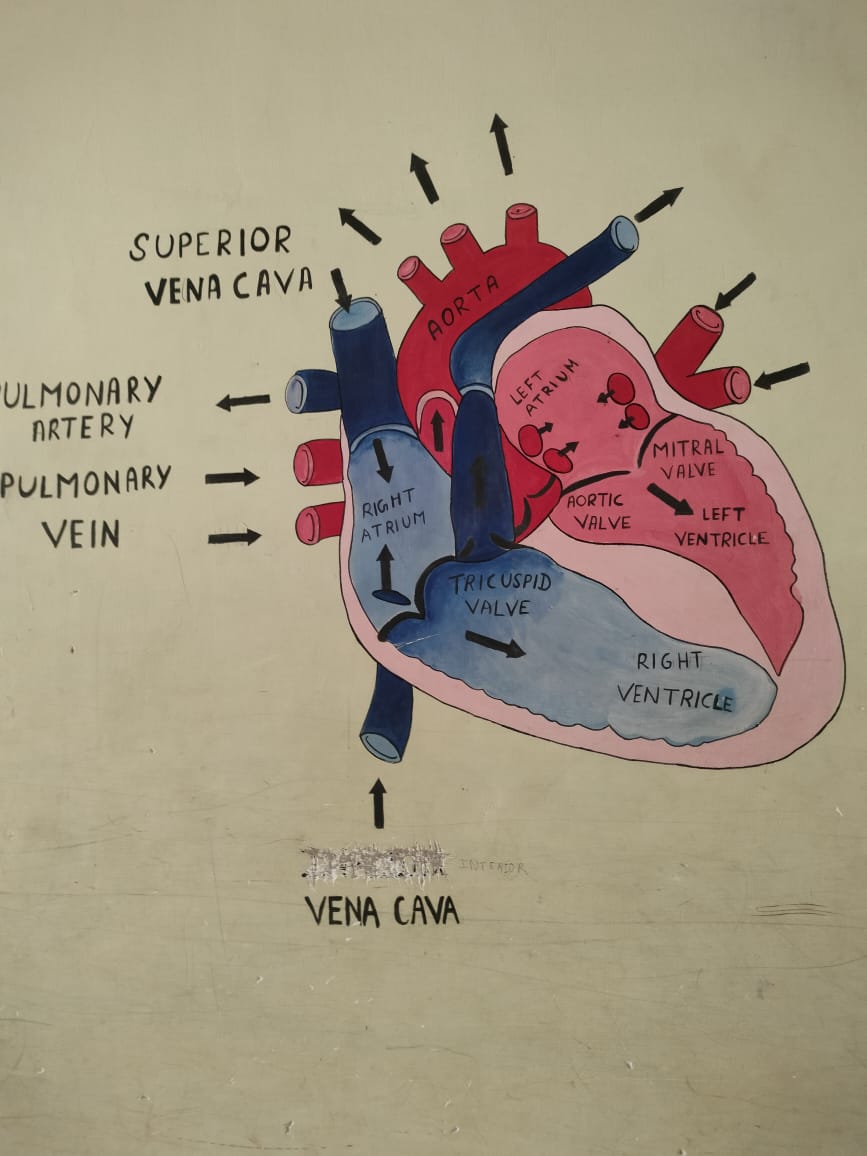 SUPERIOR
VENA CAVA
AORTA
ULMONARY
ARTERY
PULMONARY
VEIN
LEFT
ATRIUM
MITRAL
VALVE
AORTIC
VALVE
LEFT
VENTRICLE
RIGHT
ATRIUM
TRICUSPID
VALVE
RIGHT
VENTRICLE
VENA CAVA